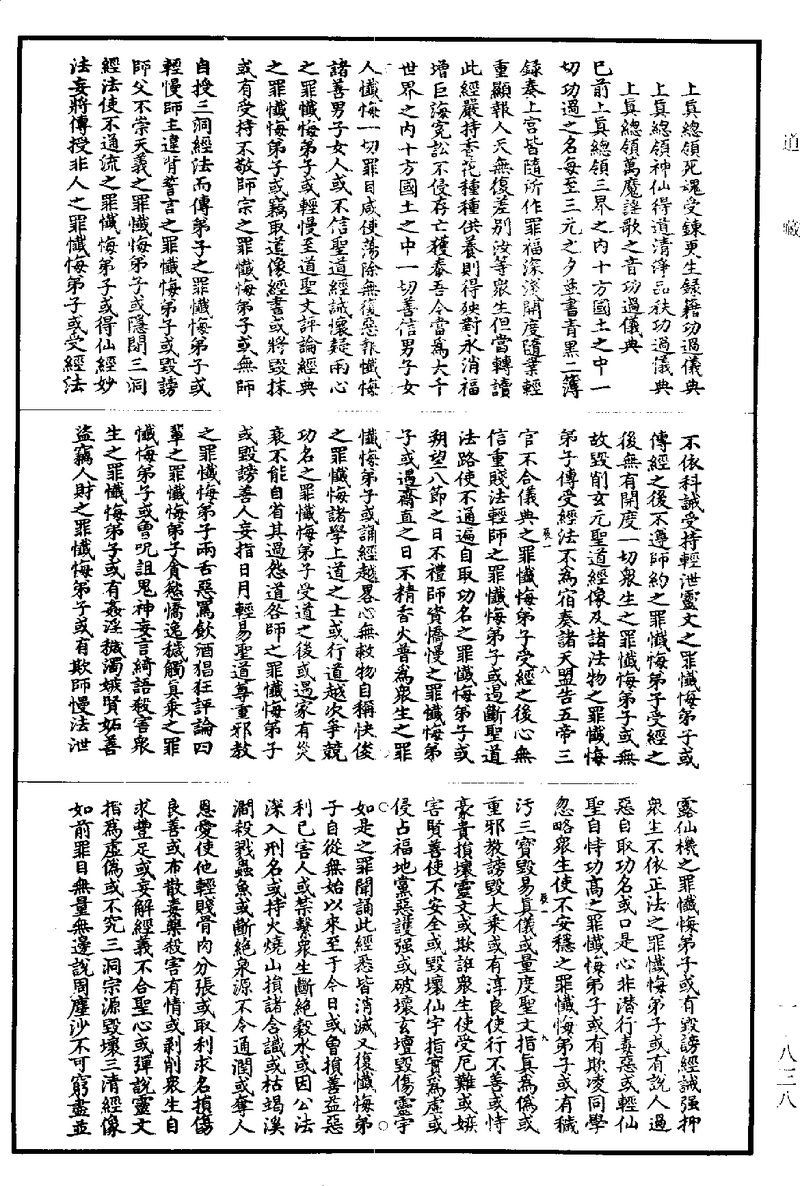 道藏
上真總領死魂受鍊更生錄籍功過儀典
上真總領神仙得道清淨品秩功過儀典
上真總領萬魔謡歌之音功過儀典
已前上真總領三界之內十方國土之中一
切功過之名每至三元之夕並書青黑二簿
錄奏上宮皆隨所作罪福深淺開度隨業輕
重顯報人天無復差別汝等衆生但當轉讀
此經嚴持香花種種供養則得殃對永消福
增巨海寃訟不侵存亡獲泰吾今當爲大千
世界之內十方國土之中一切善信男子女
人懺悔一切罪目咸使蕩除無復惡報懺悔
諸善男子女人或不信聖道經誡懷疑兩心
之罪懺悔弟子或輕慢至道聖文評論經典
之罪懺悔弟子或竊取道像經書或將毀抹
或有受持不敬師宗之罪懺悔弟子或無師
自授三洞經法而傳弟子之罪懺悔弟子或
輕慢師主違背誓言之罪懺悔弟子或毀謗
師父不崇天義之罪懺悔弟子或隱閉三洞
經法使不通流之罪懺悔弟子或得仙經妙
法妄將傳授非人之罪懺悔弟子或受經法
不依科誡受持輕泄靈文之罪懺悔弟子或
傳經之後不遵師約之罪懺悔弟子受經之
後無有開度一切衆生之罪懺悔弟子或無
故毀削玄元聖道經像及諸法物之罪懺悔
弟子傳受經法不爲宿奏諸天盟告五帝三
官不合儀典之罪懺悔弟子受經之後心無
信重賤法輕師之罪懺悔弟子或遏斷聖道
法路使不通遍自取功名之罪懺悔弟子或
朔望八節之日不禮師資憍慢之罪懺悔弟
子或遇齋直之日不精香火普爲衆生之罪
懺悔弟子或誦經越畧心無救物自稱快俊
之罪懺悔諸學上道之士或行道越次爭競
功名之罪懺悔弟子受道之後或遇家有災
衰不能自省其過怨道咎師之罪懺悔弟子
或毀謗善人妄指日月輕易聖道尊重邪教
之罪懺悔弟子兩舌惡罵飲酒猖狂評論四
輩之罪懺悔弟子貪慾憍逸穢觸真乘之罪
懺悔弟子或曾呪詛鬼神妄言綺語殺害衆
生之罪懺悔弟子或有姦淫穢濁嫉賢妬善
盜竊人財之罪懺悔弟子或有欺師慢法泄
露仙機之罪懺悔弟子或有毀謗經誡强抑
衆生不依正法之罪懺悔弟子或有說人過
惡自取功名或口是心非潛行毒惡或輕仙
聖自恃功高之罪懺悔弟子或有欺凌同學
忽略衆生使不安穩之罪懺悔弟子或有穢
汚三寶毀易真儀或量度聖文指真爲僞或
重邪教謗毀大乘或有淳良使行不善或恃
豪貴損壞靈文或欺誑衆生使受厄難或嫉
害賢善使不安全或毀壞仙宇指實爲虛或
侵占福地黨惡護强或破壞玄壇毀傷靈宇
如是之罪開誦此經悉皆消滅又復懺悔弟
子自從無始以來至于今日或曾損善益惡
利己害人或禁繫衆生斷絕穀水或因公法
深入刑名或持火燒山損諸含識或枯竭溪
澗殺戮蟲魚或斷絕泉源不令通潤或奪人
恩愛使他輕賤骨肉分張或取利求名損傷
良善或布散毒藥殺害有情或剥削衆生自
求豐足或妄解經義不合聖心或彈說靈文
指爲虛僞或不究三洞宗源毀壞三清經像
如前罪目無量無邊說周塵沙不可窮盡並
一·八三八